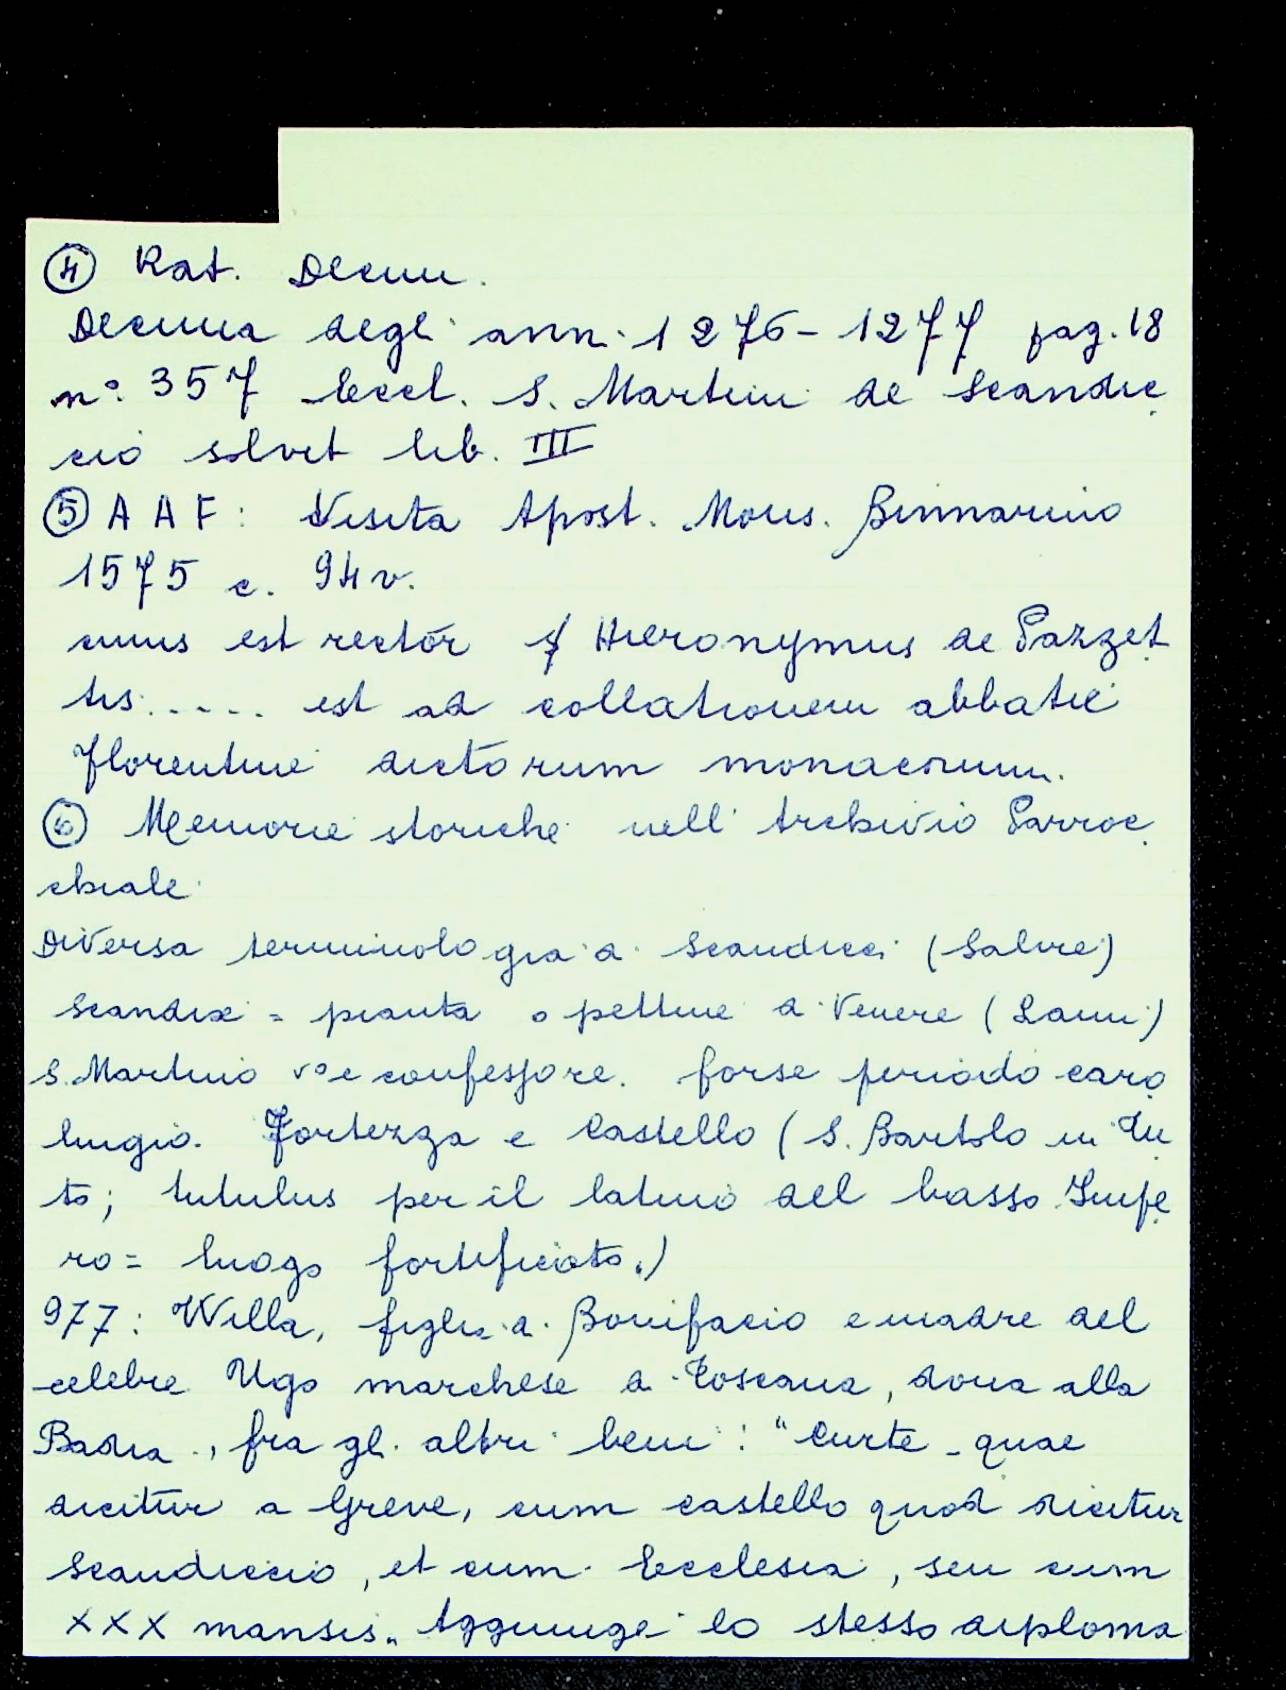 ④ Rat. Decim.
Decima degli anni 1276-1277 pag. 18
n° 357 Eccl. S. Martini de Scandic
cio solvit lib. III
⑤ AAF: Visita Apost. Mons. Binnarino
1575 c. 94v.
cuius est rector Hieronymus de Pazzet
tis..... est ad collationem abbatie
florentine dictorum monacorum.
⑥ Memorie storiche nell'Archivio Parroc
chiale
Diversa terminologia di Scandicci (Salvi)
Scandix = pianta o pettine di Venere (Lami)
S. Martino v° e confessore. forse periodo caro
lingio. Fortezza e Castello (S. Bartolo in Tu
to; tutulus per il latino del basso Impe
ro = luogo fortificato.)
977: Willa, figlia di Bonifacio e madre del
celebre Ugo marchese di Toscana, dona alla
Badia, fra gli altri beni: "Curte quae
dicitur a Greve, cum castello quod dicitur
Scandiccio, et cum Ecclesia, seu cum
XXX mansis„ Aggiunge lo stesso diploma